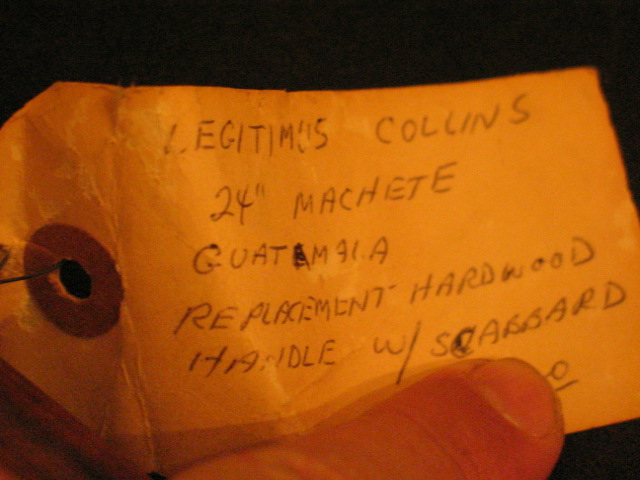 LEGITIMUS COLLINS
24" MACHETE
GUATEMALA
REPLACEMENT HARDWOOD
HANDLE W/ SCABBARD